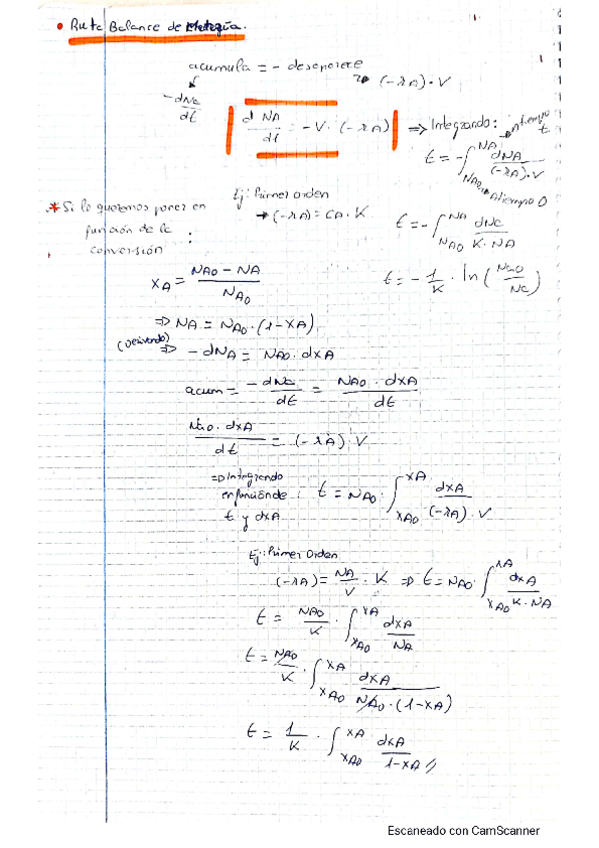 • Ruta Balance de Materia.
acumula = - desaparece
→ (-rA)·V
-dNa/dt
d NA/dt = -V·(-rA) ⇒ Integrando: → tiempo t
t = -∫_{NA0}^{NA} dNA/((-rA)·V) → A tiempo 0
Ej: Primer orden
→ (-rA) = CA·K
t = -∫_{NA0}^{NA} dNa/(K·NA)
t = -1/K · ln(Na0/Na)
* Si lo queremos poner en
función de la
conversión :
XA = (NA0 - NA)/NA0
⇒ NA = NA0·(1-XA)
(Derivando) ⇒ -dNA = NA0·dXA
acum = -dNa/dt = NA0·dXA/dt
Na0·dXA/dt = (-rA)·V
⇒ Integrando
en función de :
t y dXA
t = NA0·∫_{XA0}^{XA} dXA/((-rA)·V)
Ej: Primer Orden
(-rA) = NA/V · K ⇒ t = NA0·∫_{XA0}^{XA} dXA/(K·NA)
t = NA0/K · ∫_{XA0}^{XA} dXA/NA
t = NA0/K · ∫_{XA0}^{XA} dXA/(NA0·(1-XA))
t = 1/K · ∫_{XA0}^{XA} dXA/(1-XA) //
Escaneado con CamScanner